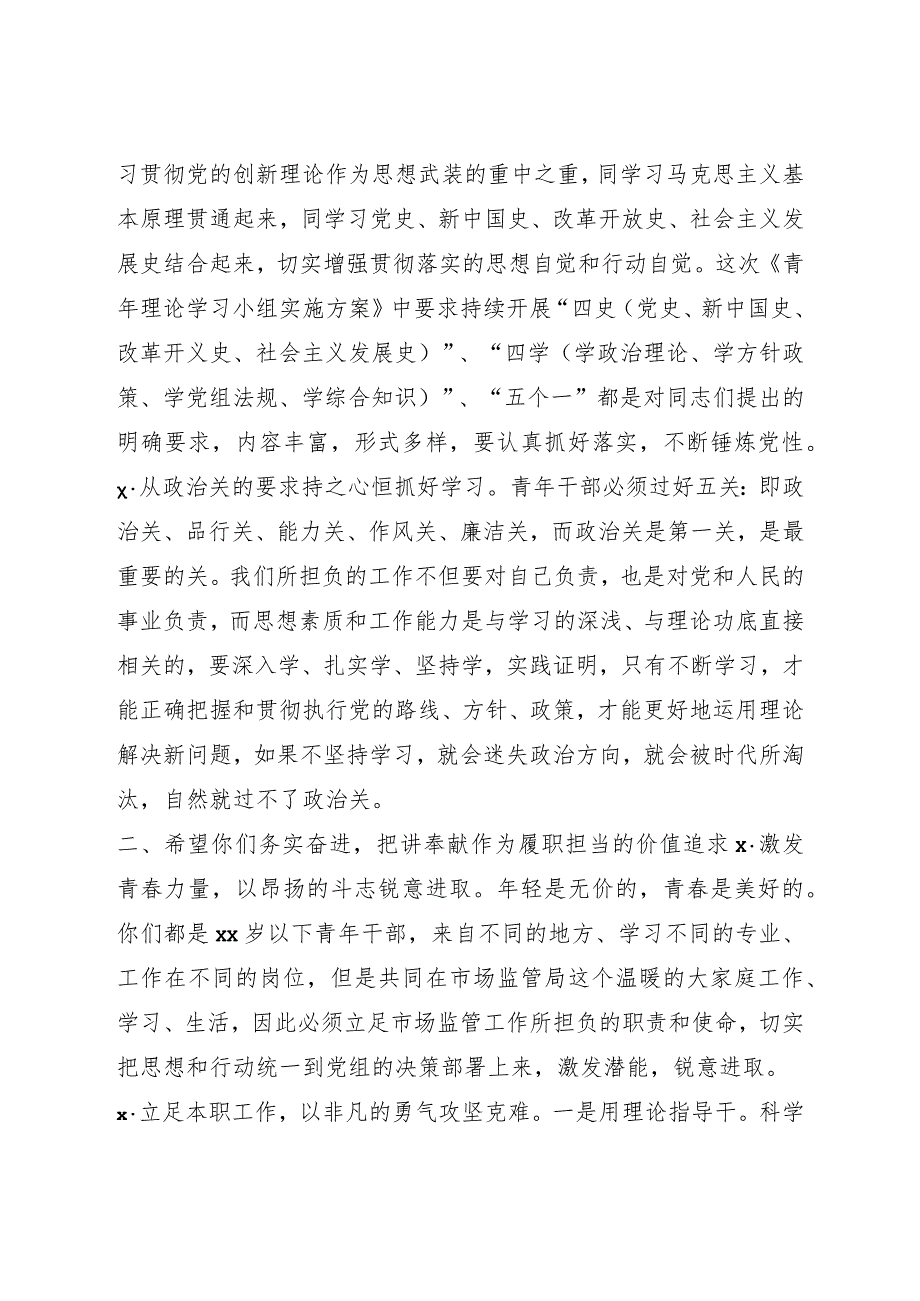 习贯彻党的创新理论作为思想武装的重中之重，同学习马克思主义基
本原理贯通起来，同学习党史、新中国史、改革开放史、社会主义发
展史结合起来，切实增强贯彻落实的思想自觉和行动自觉。这次《青
年理论学习小组实施方案》中要求持续开展“四史（党史、新中国史、
改革开义史、社会主义发展史）”、“四学（学政治理论、学方针政
策、学党组法规、学综合知识）”、“五个一”都是对同志们提出的
明确要求，内容丰富，形式多样，要认真抓好落实，不断锤炼党性。
χ·从政治关的要求持之心恒抓好学习。青年干部必须过好五关：即政
治关、品行关、能力关、作风关、廉洁关，而政治关是第一关，是最
重要的关。我们所担负的工作不但要对自己负责，也是对党和人民的
事业负责，而思想素质和工作能力是与学习的深浅、与理论功底直接
相关的，要深入学、扎实学、坚持学，实践证明，只有不断学习，才
能正确把握和贯彻执行党的路线、方针、政策，才能更好地运用理论
解决新问题，如果不坚持学习，就会迷失政治方向，就会被时代所淘
汰，自然就过不了政治关。
二、希望你们务实奋进，把讲奉献作为履职担当的价值追求 x·激发
青春力量，以昂扬的斗志锐意进取。年轻是无价的，青春是美好的。
你们都是 xx 岁以下青年干部，来自不同的地方、学习不同的专业、
工作在不同的岗位，但是共同在市场监管局这个温暖的大家庭工作、
学习、生活，因此必须立足市场监管工作所担负的职责和使命，切实
把思想和行动统一到党组的决策部署上来，激发潜能，锐意进取。
x·立足本职工作，以非凡的勇气攻坚克难。一是用理论指导干。科学